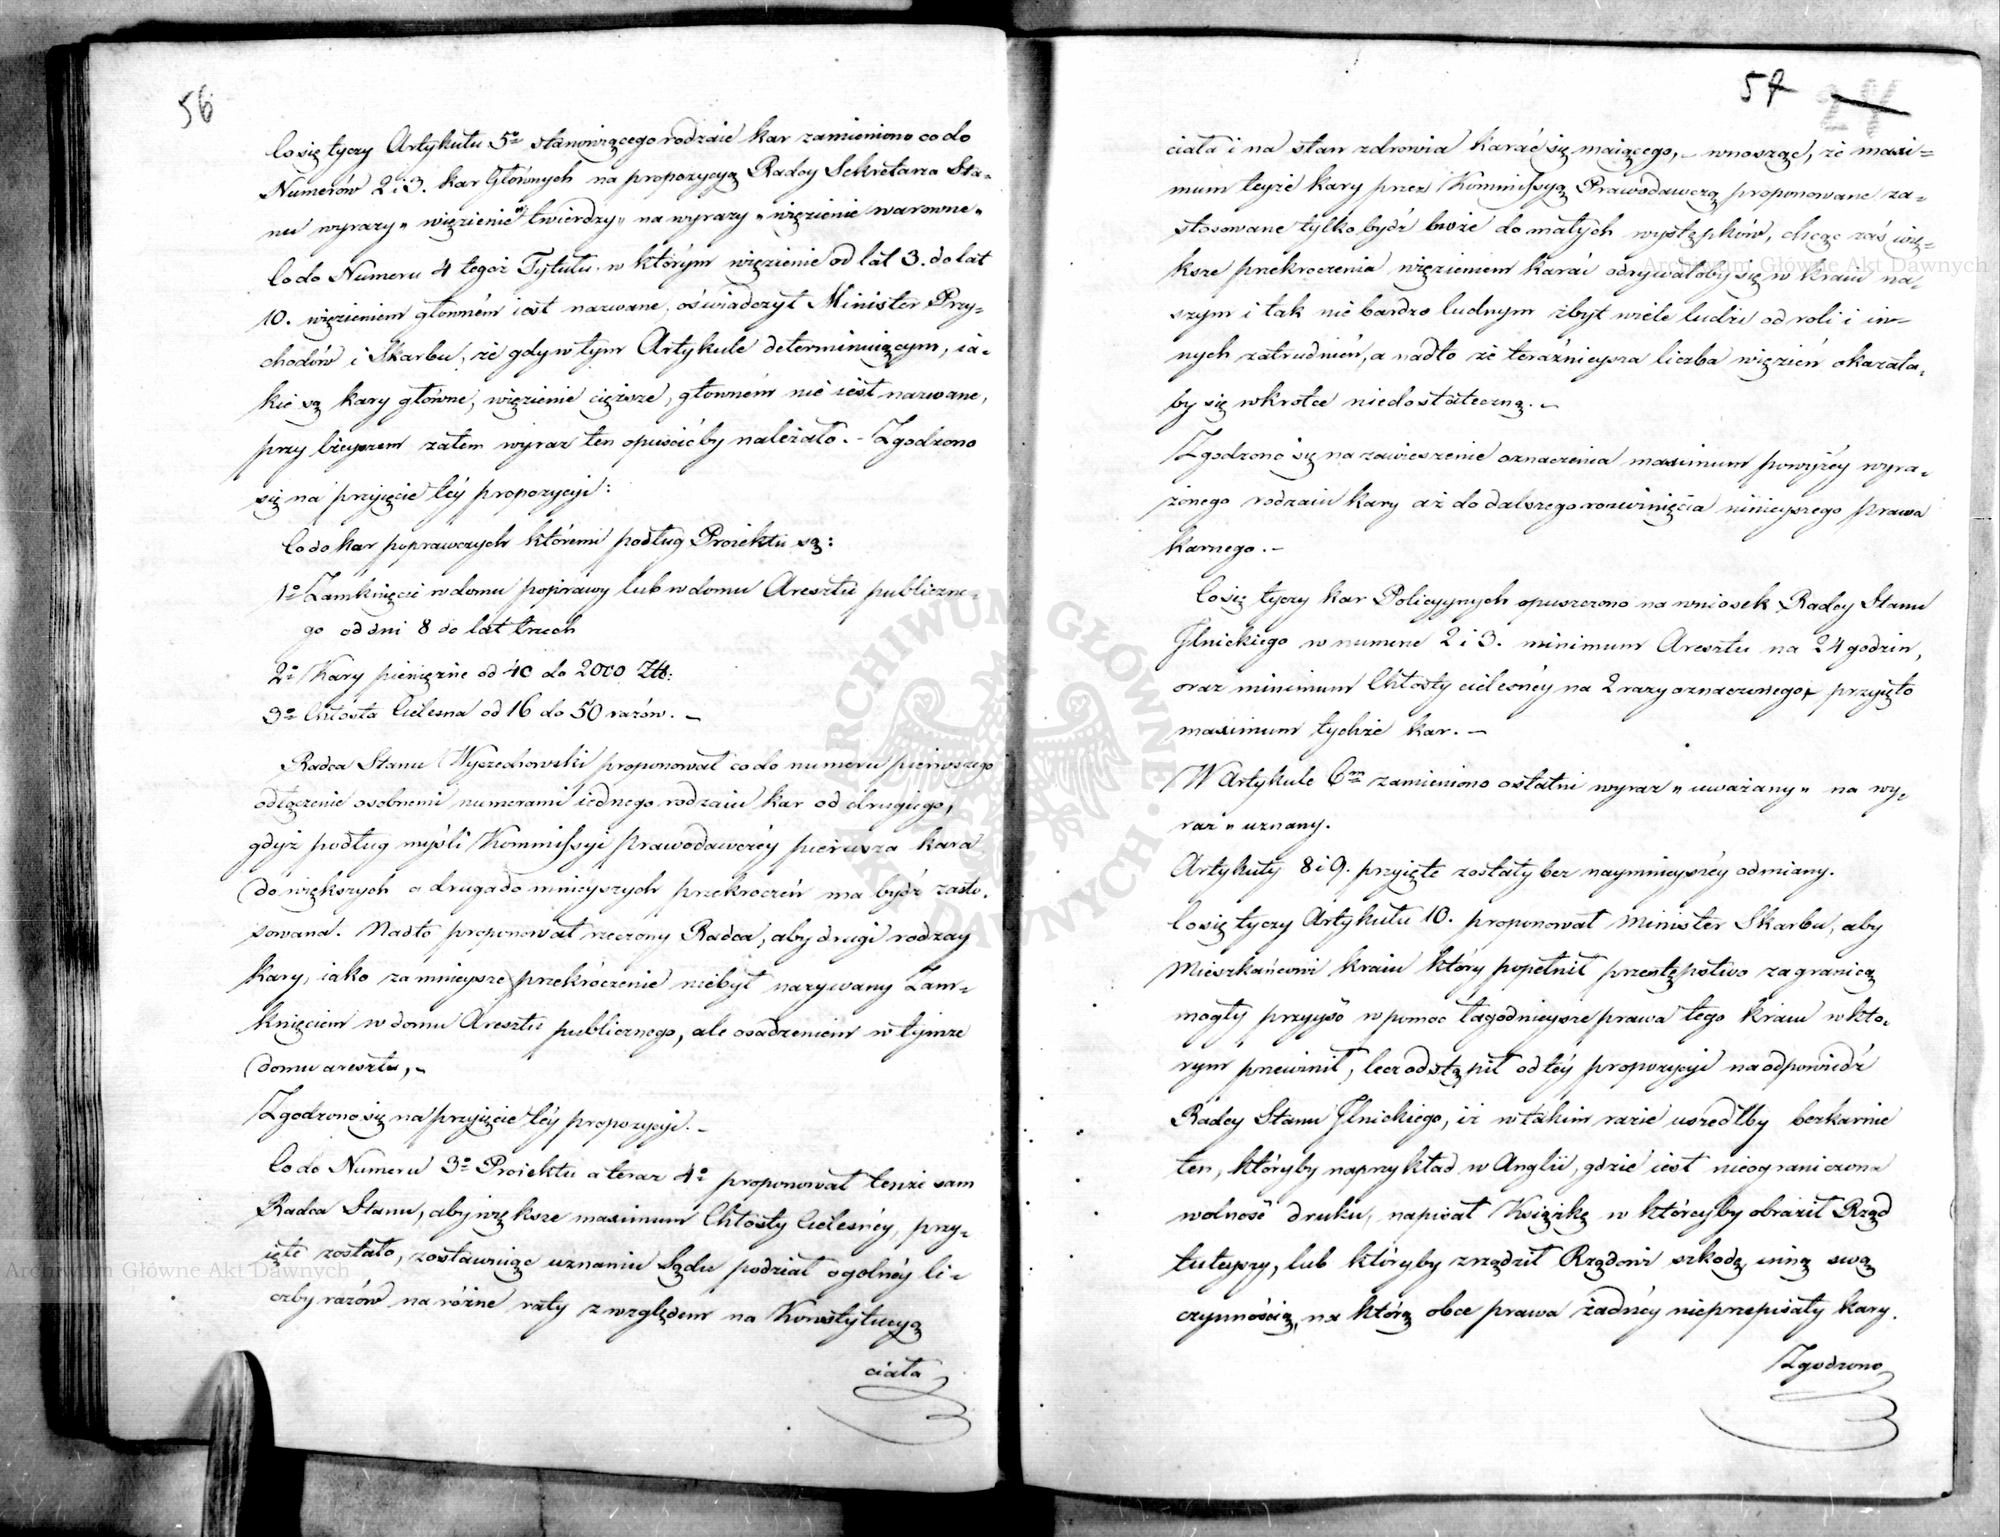 56
Co się tyczy Artykułu 5º stanowiącego rodzaie kar zamieniono co do
Numerów 2 i 3. kar Głównych na propozycyą Radcy Sekretarza Sta=
nu wyrazy „więzienie twierdzy„ na wyrazy „więzienie warowne„
Co do Numeru 4 tegoż Tytułu w którym więzienie od lat 3. do lat
10. więzieniem głowném iest nazwane, oświadczył Minister Przy=
chodów i Skarbu, że gdy w tym Artykule determinuiącym, ia=
kie są kary główne, więzienie cięższe, głownem nie iest nazwane,
przy lżeyszem zatem wyraz ten opuścićby należało. - Zgodzono
się na przyięcie téy propozycyi:
Co do kar poprawczych któremi podług Proiektu są:
1º Zamknięcie w domu poprawy lub w domu Aresztu publiczne=
go od dni 8 do lat trzech
2º Kary pieniężne od 40 do 2000 Złł:
3º Chłosta Cielesna od 16 do 50 razów. -
Radca Stanu Wyczechowski proponował co do numeru pierwszego
odłączenie osobnemi numerami iednego rodzaiu kar od drugiego,
gdyż podług myśli Kommissyi Prawodawczéy pierwsza kara
do większych a druga do mnieyszych przekroczeń ma bydź zasto=
sowana. Nadto proponował rzeczony Radca, aby drugi rodzay
kary, iako za mnieysze przekroczenie niebył nazywany Zam=
knięciem w domu Aresztu publicznego, ale osadzeniem w tymże
domu aresztu, -
Zgodzono się na przyięcie téy propozycyi. -
Co do Numeru 3º Proiektu a teraz 4º proponował tenże sam
Radca Stanu, aby większe maximum Chłosty Cielesnéy, przy=
ięte zostało, zostawuiąc uznaniu Sądu podział ogólnéy li=
czby razów na różne raty z względem na Konstytucyą
ciała
57 24
ciała i na stan zdrowia karać się maiącego, - wnosząc, że maxi=
mum teyże kary przez Kommissyą Prawodawczą proponowane za=
stosowane tylko bydź może do małych występków, chcąc zaś wię=
ksze przekroczenia więzieniem karać odrywałoby się w kraiu na=
szym i tak nie bardzo ludnym zbyt wiele ludzi od roli i in=
nych zatrudnień, a nadto że teraźnieysza liczba więzień okazała=
by się wkrótce niedostateczną. -
Zgodzono się na zawieszenie oznaczenia maximum powyżéy wyra=
żonego rodzaiu kary aż do dalszego rozwinięcia ninieyszego prawa
karnego. -
Co się tyczy kar Policyynych opuszczono na wniosek Radcy Stanu
Ilnickiego w numerze 2 i 3. minimum Aresztu na 24 godzin,
oraz minimum Chłosty cielesnéy na 2 razy oznaczonego, przyięto
maximum tychże kar. -
W Artykule 6m zamieniono ostatni wyraz „uważany„ na wy=
raz „uznany.
Artykuły 8 i 9. przyięte zostały bez naymnieyszéy odmiany.
Co się tyczy Artykułu 10. proponował Minister Skarbu, aby
Mieszkańcowi kraiu który popełnił przestępstwo za granicą
mogły przyyść w pomoc łagodnieysze prawa tego kraiu w któ=
rym przewinił, lecz odstąpił od téy propozycyi na odpowiedź
Radcy Stanu Ilnickiego, iż w takim razie uszedłby bezkarnie
ten, któryby naprzykład w Anglii, gdzie iest nieograniczona
wolność druku, napisał Książkę w któréyby obraził Rząd
tuteyszy, lub któryby zrządził Rządowi szkodę inną swą
czynnością, na którą obce prawa żadnéy nieprzepisały kary.
Zgodzono
ARCHIWUM GŁÓWNE AKT DAWNYCH
Archiwum Główne Akt Dawnych
Archiwum Główne Akt Dawnych